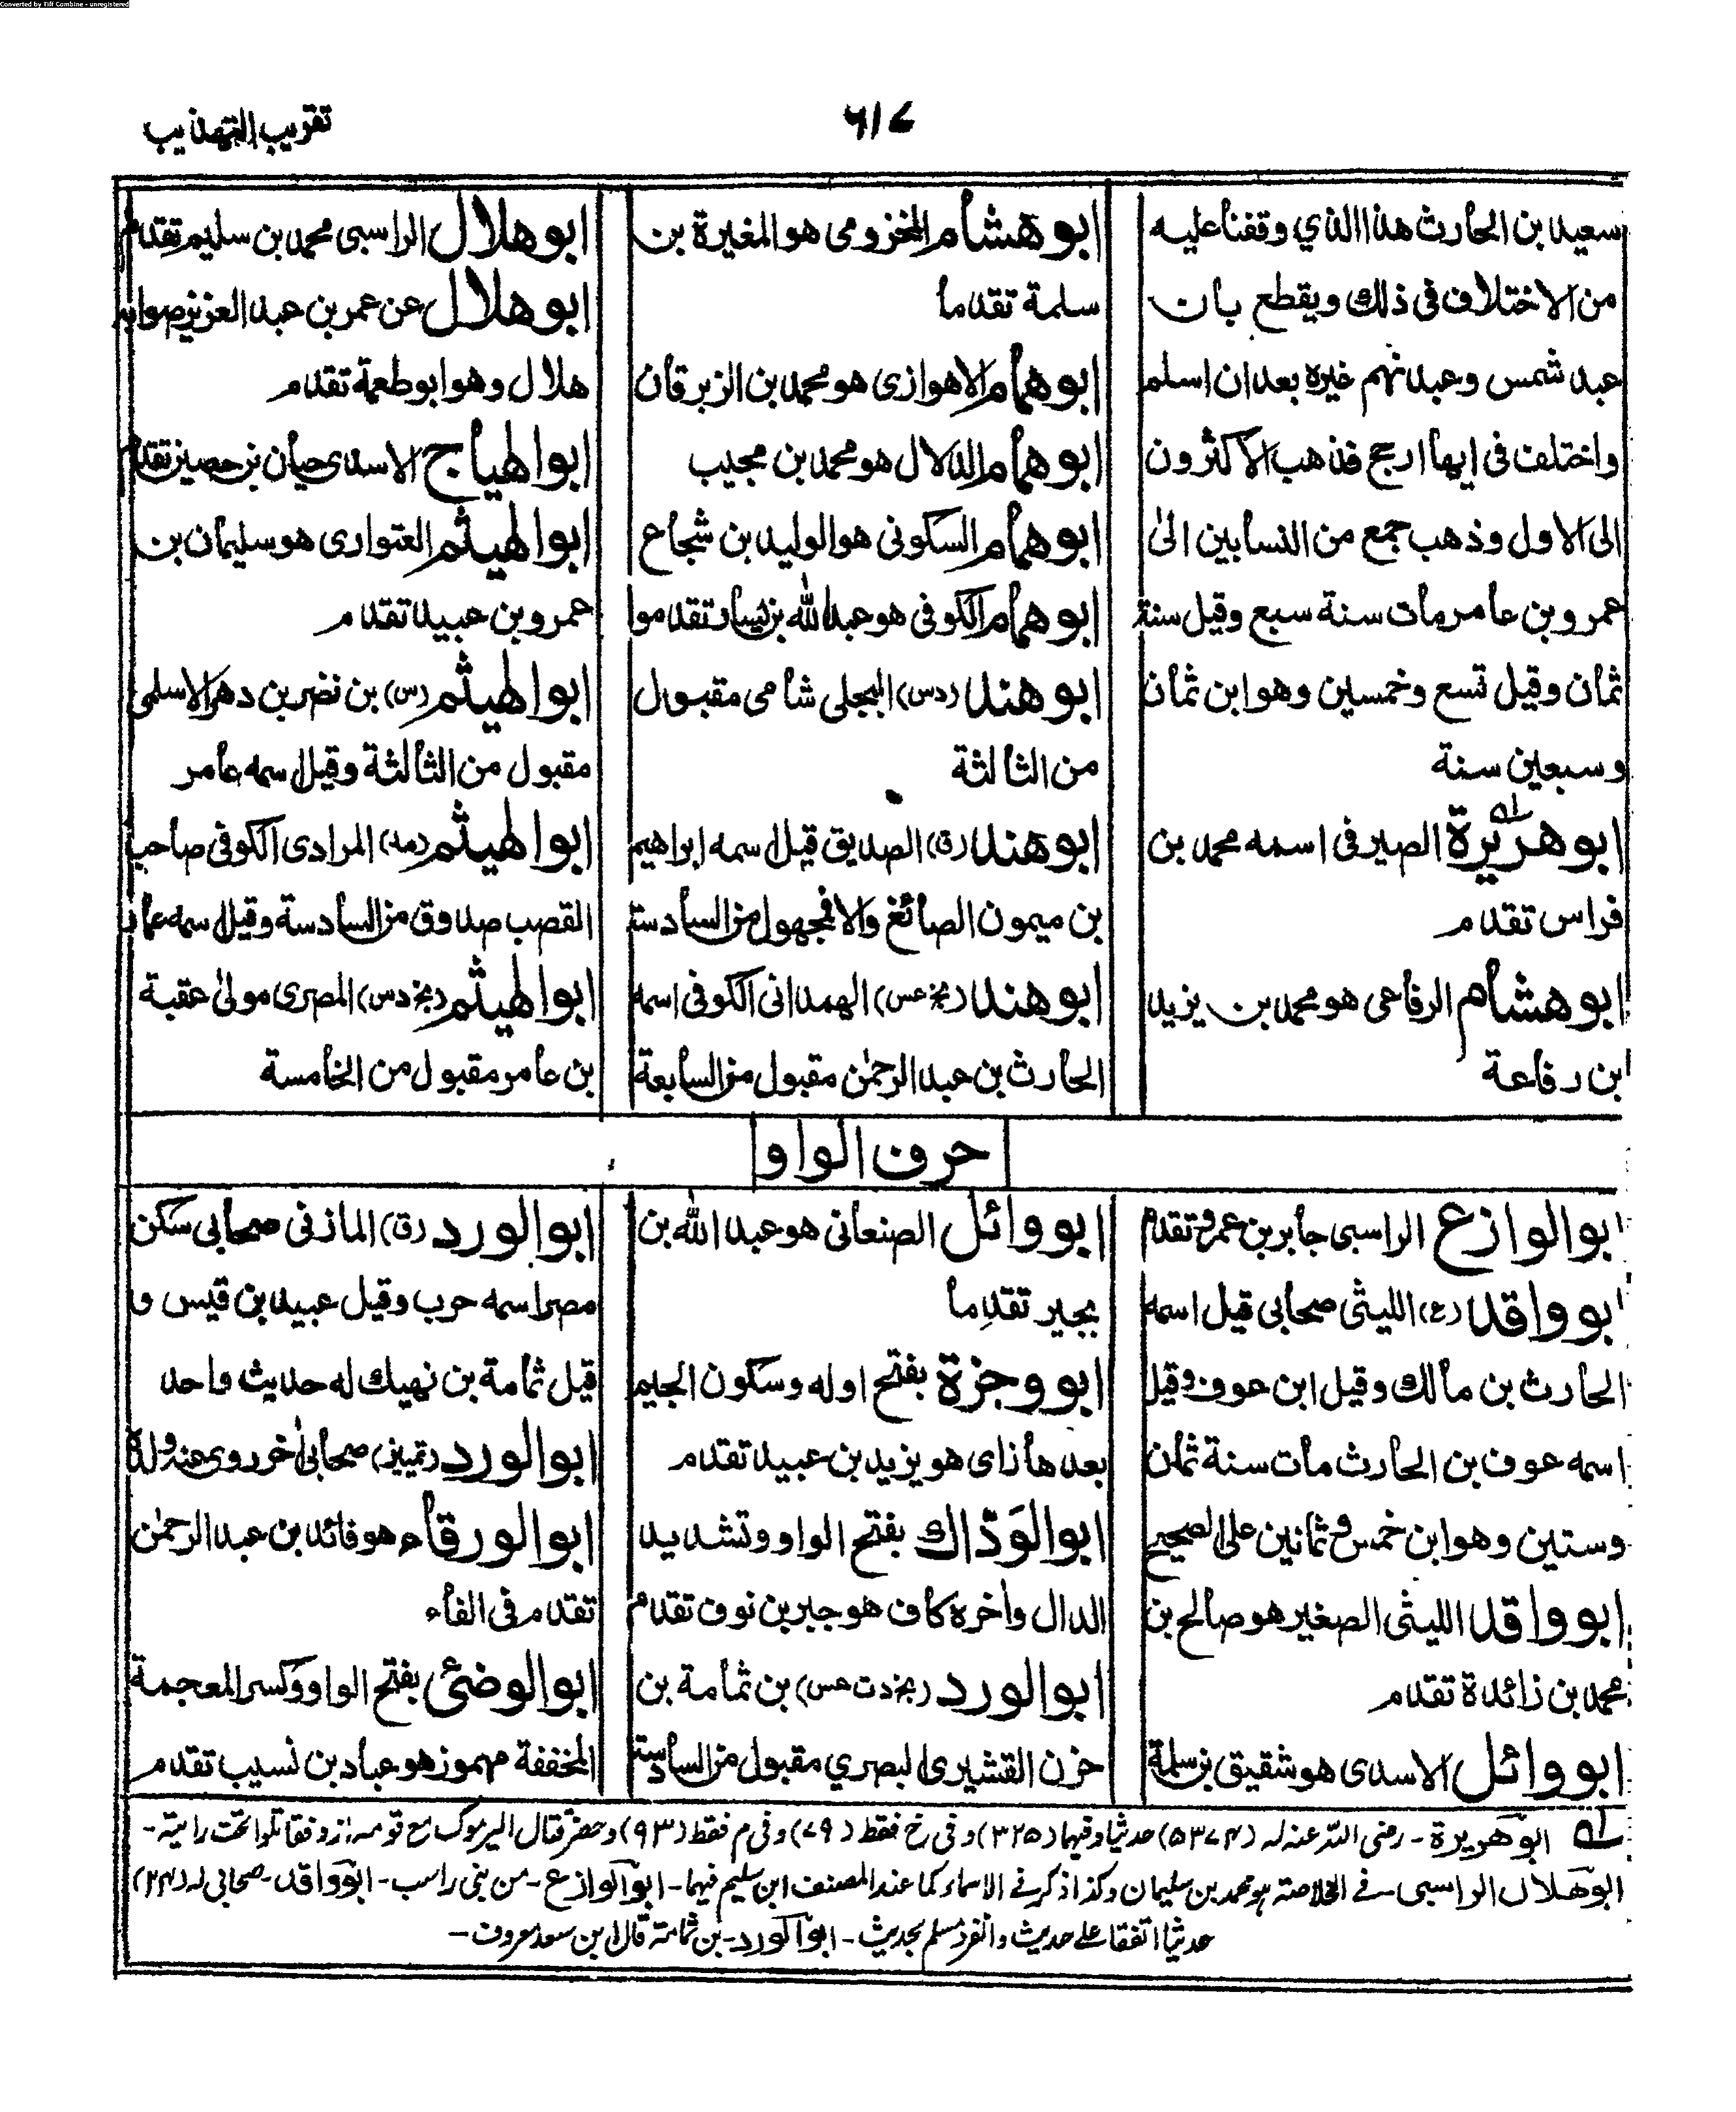 Converted by Tiff Combine - unregistered
تقريب التهذيب
٦١٧
سعيد بن الحارث هذا الذي وقفنا عليه
من الاختلاف في ذلك ويقطع بان
عبد شمس وعبد نهم غيره بعد ان اسلم
واختلف في ايها ارجح فذهب الاكثرون
الى الاول وذهب جمع من النسابين الى
عمرو بن عامر مات سنة سبع وقيل سنة
ثمان وقيل تسع وخمسين وهو ابن ثمان
وسبعين سنة
ابو هريرة الصيرفي اسمه محمد بن
فراس تقدم
ابو هشام الرفاعي هو محمد بن يزيد
ابن رفاعة
ابو هشام المخزومي هو المغيرة بن
سلمة تقدما
ابو همام الاهوازي هو محمد بن الزبرقان
ابو همام الدلال هو محمد بن مجيب
ابو همام السكوني هو الوليد بن شجاع
ابو همام الكوفي هو عبد الله بن يسار تقدموا
ابو هند (دس) البجلي شامي مقبول
من الثالثة
ابو هند (ق) الصديق قيل اسمه ابراهيم
بن ميمون الصائغ والا فمجهول من السادسة
ابو هند (بخ عس) الهمداني الكوفي اسمه
الحارث بن عبد الرحمٰن مقبول من السابعة
ابو هلال الراسبي محمد بن سليم تقدم
ابو هلال عن عمر بن عبد العزيز صوابه
هلال وهو ابو طعمة تقدم
ابو الهياج الاسدي حيان بن حصين تقدم
ابو الهيثم العتواري هو سليمان بن
عمرو بن عبيد تقدم
ابو الهيثم (س) بن نضر بن دهر الاسلمي
مقبول من الثالثة وقيل اسمه عامر
ابو الهيثم (مد) المرادي الكوفي صاحب
القصب صدوق من السادسة وقيل اسمه عمار
ابو الهيثم (بخ دس) المصري مولىٰ عقبة
بن عامر مقبول من الخامسة
حرف الواو
ابو الوازع الراسبي جابر بن عمرو تقدم
ابو واقد (ع) الليثي صحابي قيل اسمه
الحارث بن مالك وقيل ابن عوف وقيل
اسمه عوف بن الحارث مات سنة ثمان
وستين وهو ابن خمس وثمانين على الصحيح
ابو واقد الليثي الصغير هو صالح بن
محمد بن زائدة تقدم
ابو وائل الاسدي هو شقيق بن سلمة
ابو وائل الصنعاني هو عبد الله بن
بجير تقدما
ابو وجزة بفتح اوله وسكون الجيم
بعدها زاي هو يزيد بن عبيد تقدم
ابو الوَدّاك بفتح الواو وتشديد
الدال وآخره كاف هو جبر بن نوف تقدم
ابو الورد (بخ دت عس) بن ثمامة بن
حزن القشيري البصري مقبول من السادسة
ابو الورد (ق) المازني صحابي سكن
مصر اسمه حرب وقيل عبيد بن قيس و
قيل ثمامة بن نهيك له حديث واحد
ابو الورد (تمييز) صحابي آخر روى عنه ولده
ابو الورقاء هو فائد بن عبد الرحمٰن
تقدم في الفاء
ابو الوضئ بفتح الواو وكسر المعجمة
المخففة مهموز هو عباد بن نسيب تقدم
له ابو هريرة - رضى الله عنه له (٥٣٧٤) حديثا وفيهما (٣٢٥) و في خ فقط (٧٩) وفي م فقط (٩٣) وحضر قتال اليرموك مع قومه ازد فقاتلوا تحت رايته -
ابو هلال الراسبي - في الخلاصة هو محمد بن سليمان وكذا ذكر في الاسماء كما عند المصنف ابن سليم فيهما - ابو الوازع - من بني راسب - ابو واقد - صحابي له (٢٤)
حديثا اتفقا على حديث وانفرد مسلم بحديث - ابو الورد - بن ثمامة قال ابن سعد معروف -